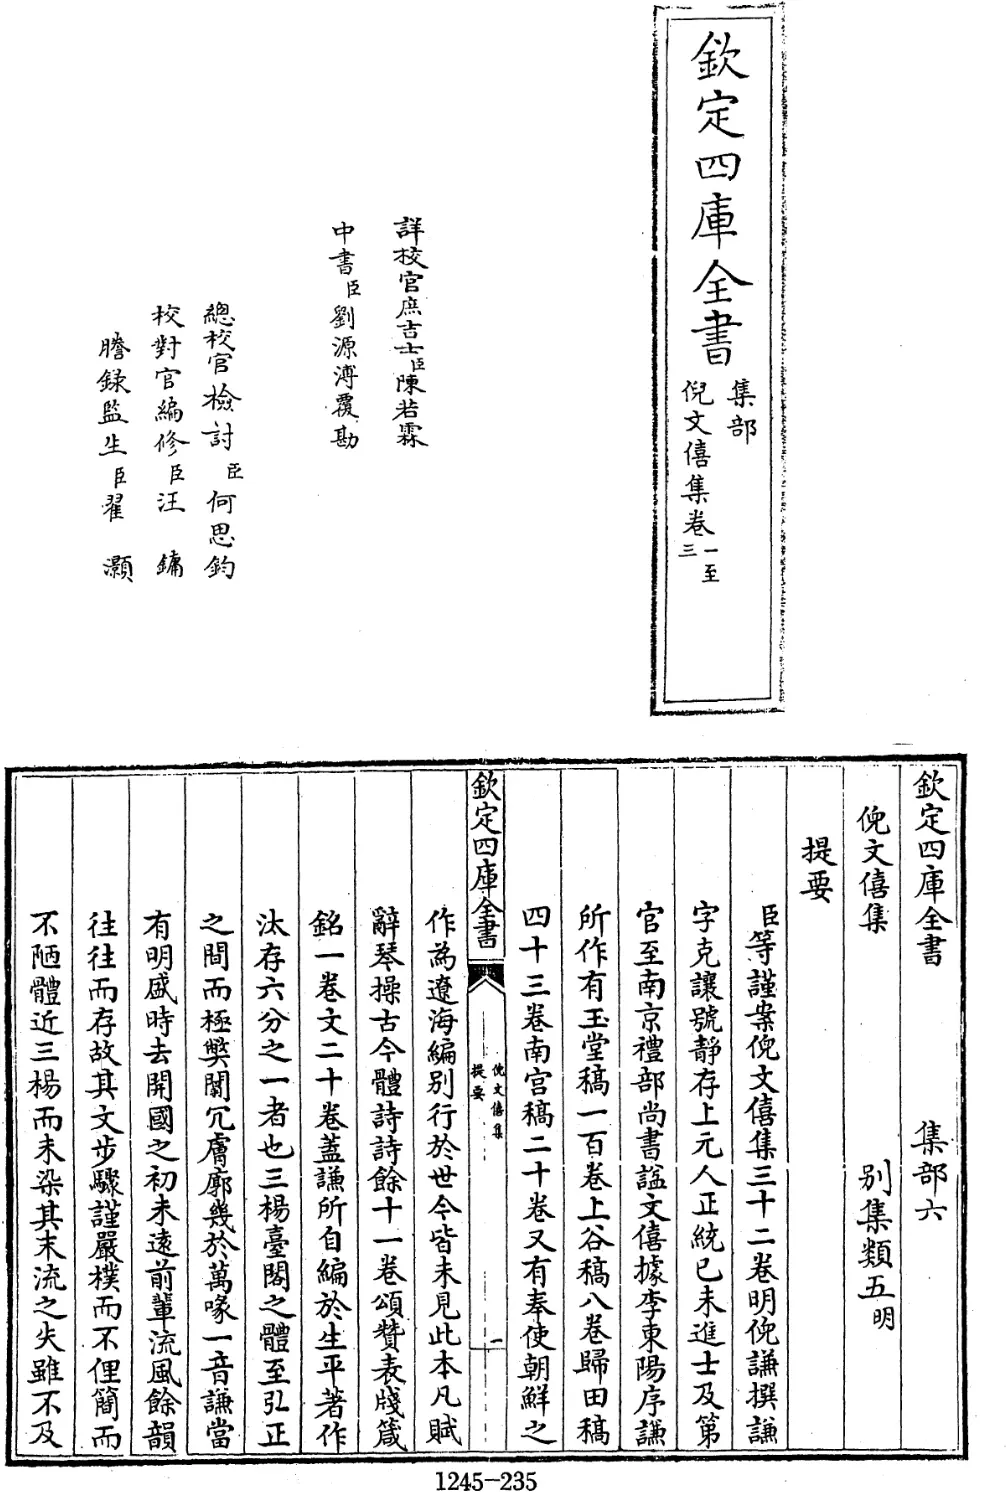 欽定四庫全書
集部
倪文僖集卷一至三
詳校官庶吉士臣陳若霖
中書臣劉源溥覆勘
總校官檢討臣何思鈞
校對官編修臣汪鏞
謄錄監生臣翟灝
欽定四庫全書 集部六
倪文僖集 別集類五明
提要
臣等謹案倪文僖集三十二卷明倪謙撰謙
字克讓號靜存上元人正統已未進士及第
官至南京禮部尚書諡文僖據李東陽序謙
所作有玉堂稿一百卷上谷稿八卷歸田稿
四十三卷南宮稿二十卷又有奉使朝鮮之
欽定四庫全書
倪文僖集
提要
一
作為遼海編別行於世今皆未見此本凡賦
辭琴操古今體詩詩餘十一卷頌贊表牋箴
銘一卷文二十卷蓋謙所自編於生平著作
汰存六分之一者也三楊臺閣之體至弘正
之間而極弊闒冗膚廓幾於萬喙一音謙當
有明盛時去開國之初未遠前輩流風餘韻
往往而存故其文步驟謹嚴樸而不俚簡而
不陋體近三楊而未染其末流之失雖不及
1245-235